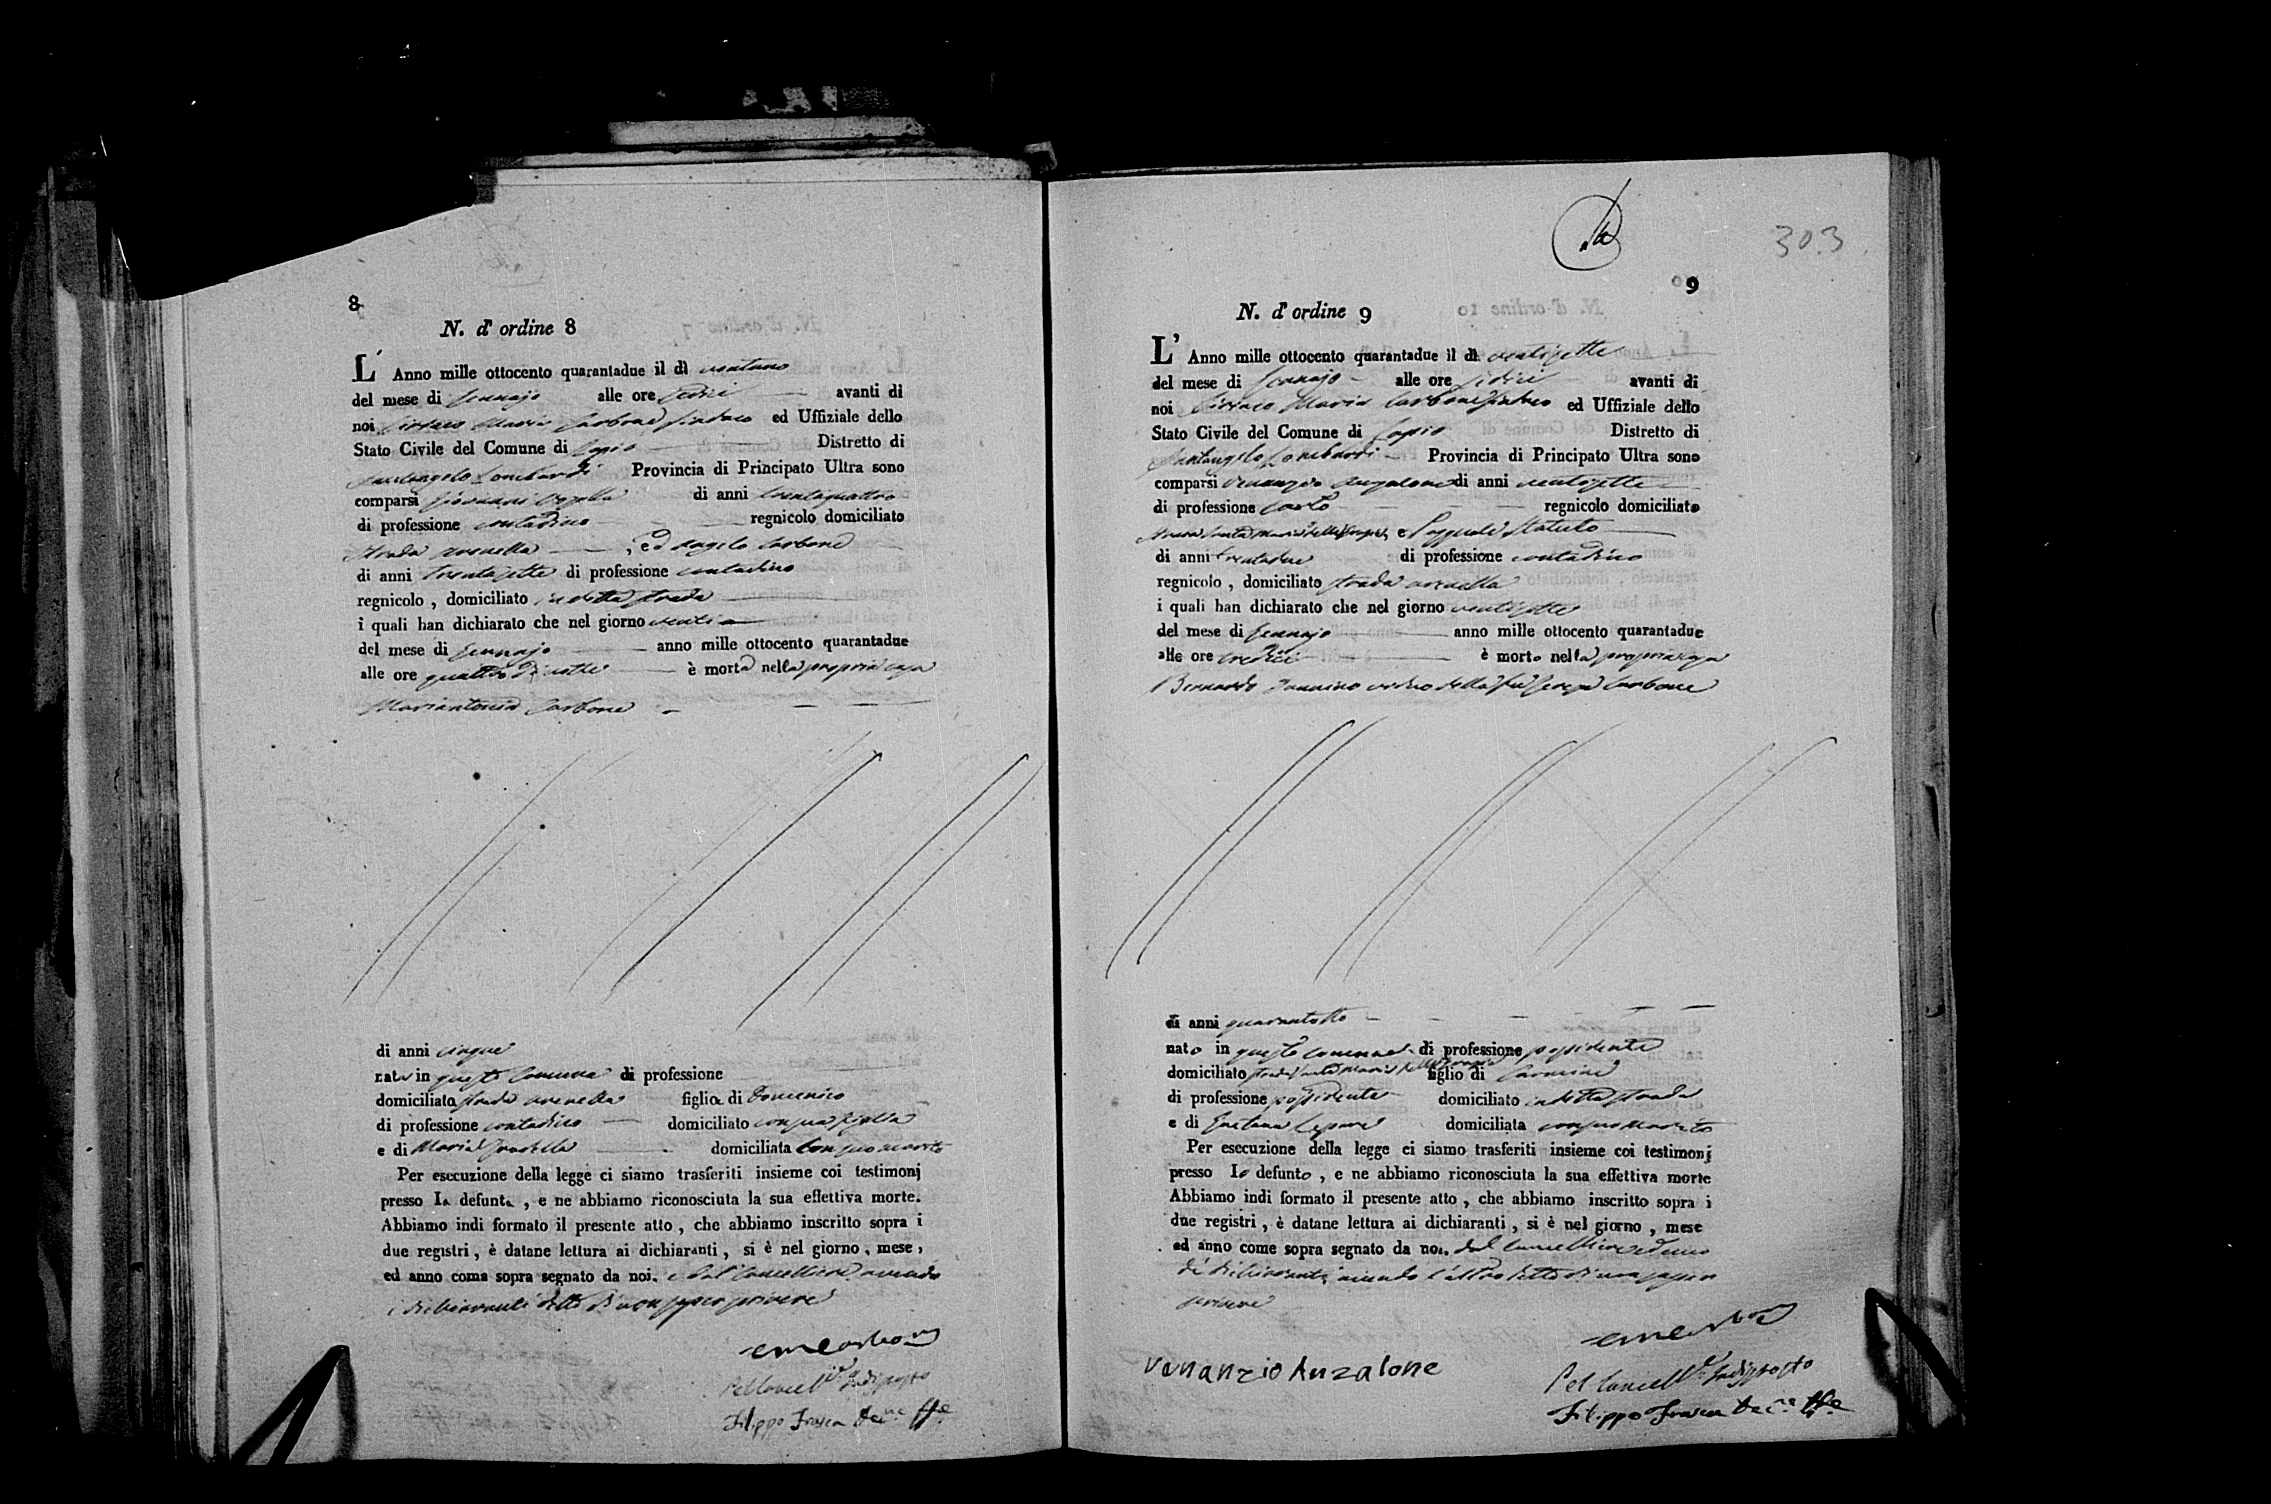 8
N. d' ordine 8
L' Anno mille ottocento quarantadue il dì ventuno
del mese di Gennajo alle ore sedici avanti di
noi Ciriaco Maria Carbone Sindaco ed Uffiziale dello
Stato Civile del Comune di Lapio Distretto di
Santangelo Lombardi Provincia di Principato Ultra sono
comparsi Giovanni di anni trentaquattro
di professione contadino regnicolo domiciliato
strada arenella , ed Angelo Carbone
di anni trentasette di professione contadino
regnicolo , domiciliato in detta strada
i quali han dichiarato che nel giorno venti
del mese di Gennajo anno mille ottocento quarantadue
alle ore quattro di notte è morta nella propria casa
Mariantonia Carbone
di anni cinque
nata in questo Comune di professione
domiciliata strada arenella figlia di Domenico
di professione contadino domiciliato con sua figlia
e di Maria domiciliata con suo marito
Per esecuzione della legge ci siamo trasferiti insieme coi testimonj
presso La defunta , e ne abbiamo riconosciuta la sua effettiva morte.
Abbiamo indi formato il presente atto , che abbiamo inscritto sopra i
due registri , è datane lettura ai dichiaranti , si è nel giorno , mese ,
ed anno coma sopra segnato da noi. e dal Cancelliere avendo
i dichiaranti detto di non saper scrivere
Pel Cancell.re Indisposto
Filippo Frasca
303
9
N. d' ordine 9
L' Anno mille ottocento quarantadue il dì ventisette
del mese di Gennajo alle ore sedici avanti di
noi Ciriaco Maria Carbone Sindaco ed Uffiziale dello
Stato Civile del Comune di Lapio Distretto di
Santangelo Lombardi Provincia di Principato Ultra sono
comparsi Venanzio Anzalone di anni ventisette
di professione sarto regnicolo domiciliato
strada Santa Maria delle Grazie, e Pasquale Statuto
di anni trentadue di professione contadino
regnicolo , domiciliato strada arenella
i quali han dichiarato che nel giorno ventisette
del mese di Gennajo anno mille ottocento quarantadue
alle ore tredici è morto nella propria casa
Bernardo vedovo della fu Teresa Carbone
di anni quarantotto
nato in questo Comune di professione possidente
domiciliato strada Santa Maria delle Grazie figlio di Carmine
di professione possidente domiciliato in detta strada
e di Gaetana Lepore domiciliata con suo marito
Per esecuzione della legge ci siamo trasferiti insieme coi testimonj
presso Lo defunto , e ne abbiamo riconosciuta la sua effettiva morte
Abbiamo indi formato il presente atto , che abbiamo inscritto sopra i
due registri , è datane lettura ai dichiaranti , si è nel giorno , mese
ed anno come sopra segnato da noi. dal Cancelliere ed uno
de' dichiaranti avendo l'altro detto di non saper
scrivere
venanzio Anzalone
Pel Cancell.re Indisposto
Filippo Frasca